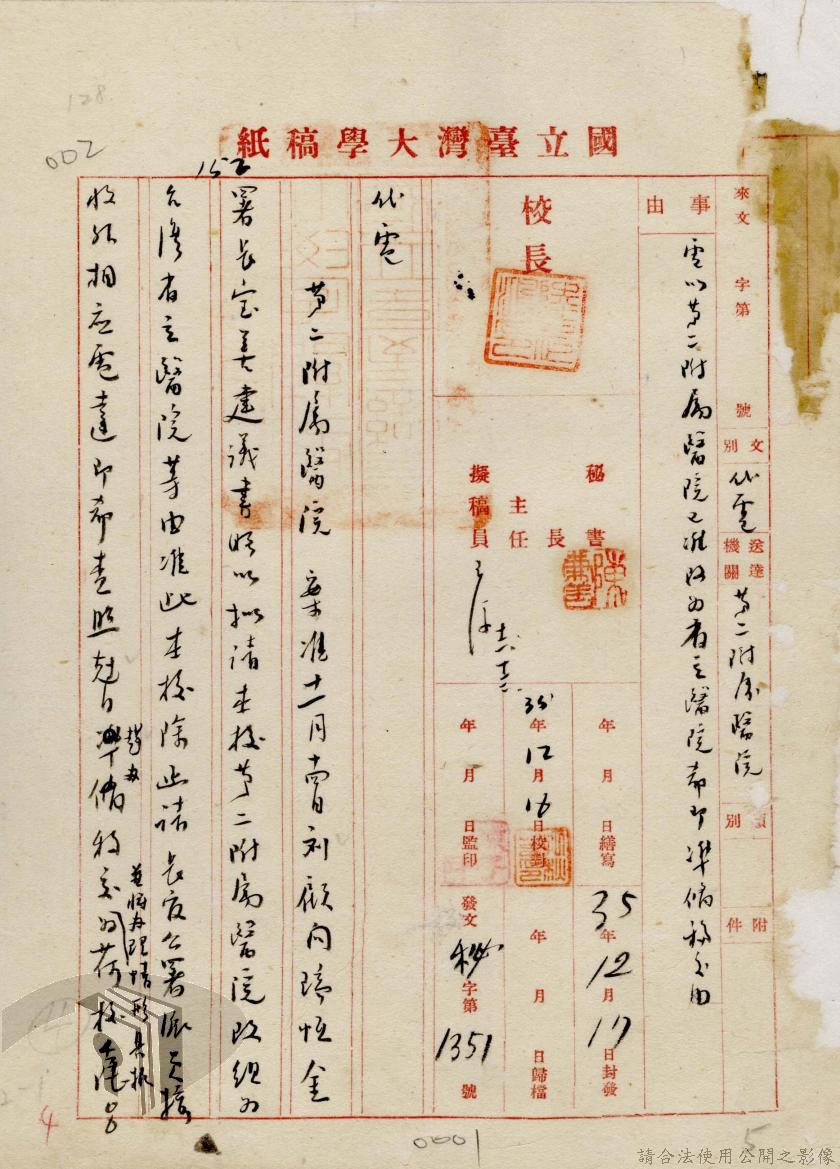 128
002
國立臺灣大學稿紙
來文 字第 號
文別 代電
送達機關 第二附屬醫院
類別
附件
事由
電以第二附屬醫院已准改為省立醫院希即準備移交由
校長
秘書
主任 書長
擬稿員
年 月 日繕寫
35年12月16日校對
年 月 日監印
35年12月17日封發
年 月 日歸檔
發文 秘字第1351號
代電
第二附屬醫院 案准十一月十四日劉顧問瑞恒金
152
署長寶善建議書略以擬請本校第二附屬醫院改組為
台灣省立醫院等由准此本校除函請 長官公署派員接
收外相應電達即希查照剋日準備移交為荷校
趕辦
並將辦理情形具報
0001
4
5
請合法使用公開之影像